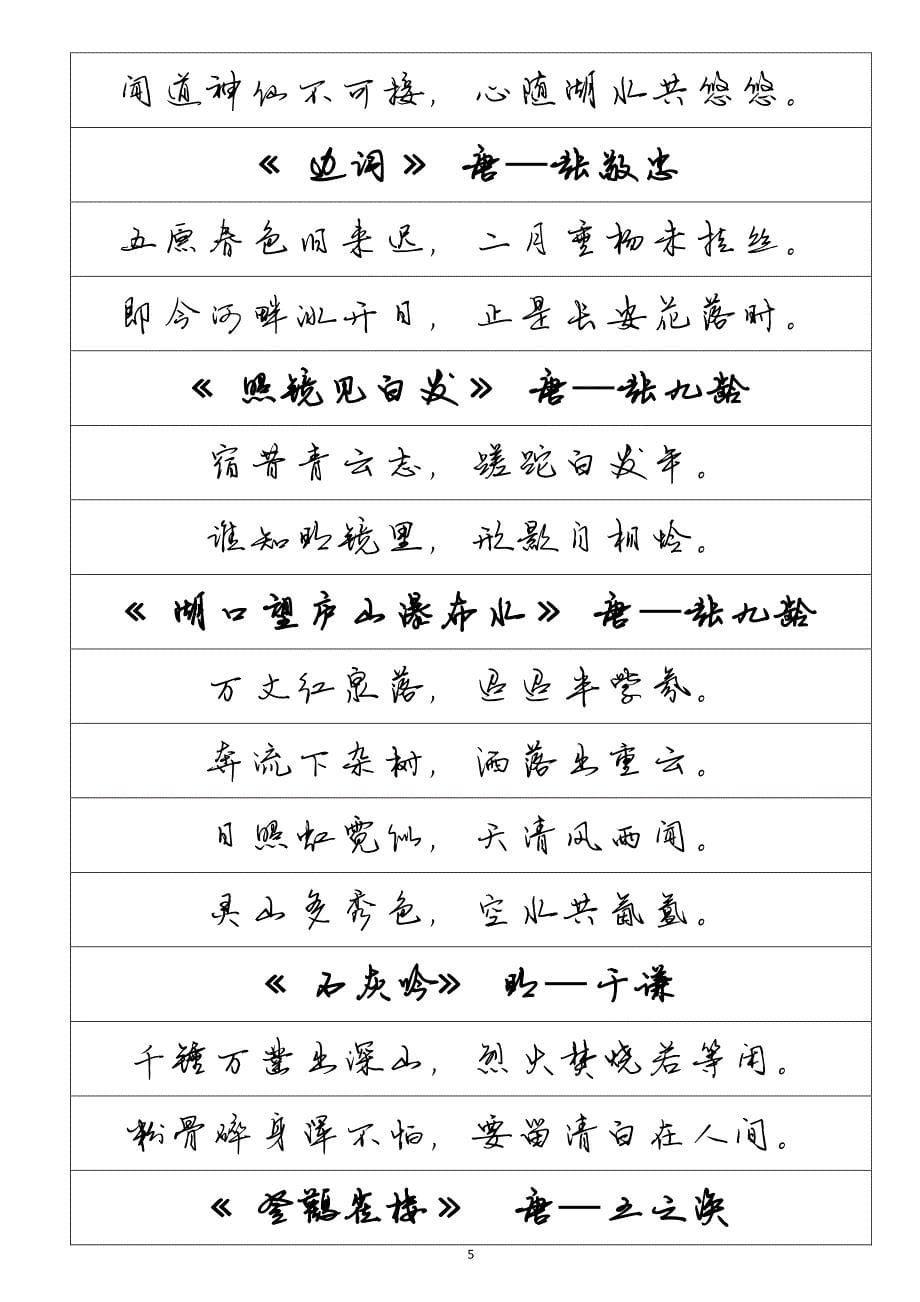 闻道神仙不可接，心随湖水共悠悠。
《 边词》 唐—张敬忠
五原春色旧来迟，二月垂杨未挂丝。
即今河畔冰开日，正是长安花落时。
《 照镜见白发》 唐—张九龄
宿昔青云志，蹉跎白发年。
谁知明镜里，形影自相怜。
《 湖口望庐山瀑布水》 唐—张九龄
万丈红泉落，迢迢半紫氛。
奔流下杂树，洒落出重云。
日照虹霓似，天清风雨闻。
灵山多秀色，空水共氤氲。
《 石灰吟》 明—于谦
千锤万凿出深山，烈火焚烧若等闲。
粉骨碎身浑不怕，要留清白在人间。
《 登鹳雀楼》 唐—王之涣
5